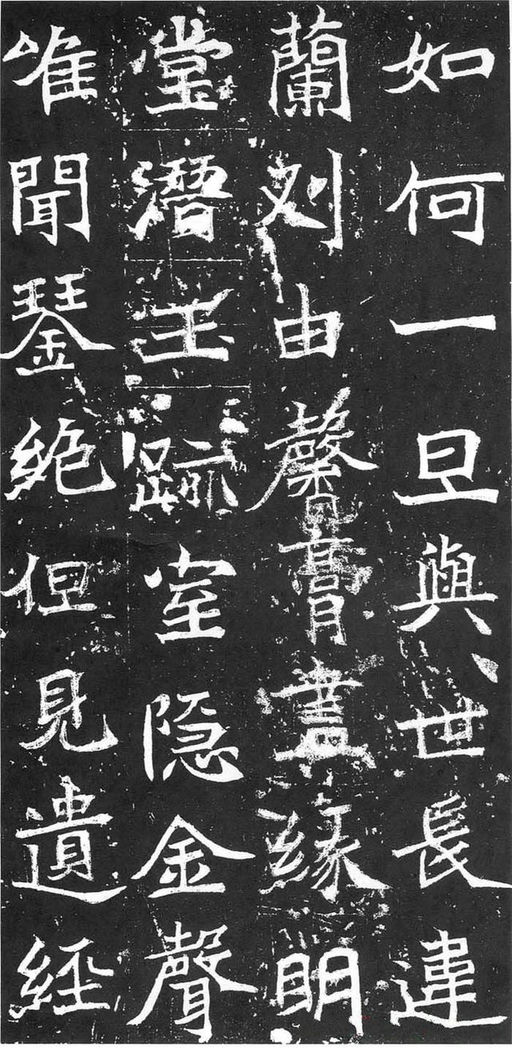 如何一旦與世長違
蘭刈由馨膏盡緣明
堂潛玉跡室隱金聲
唯聞琴絶但見遺經